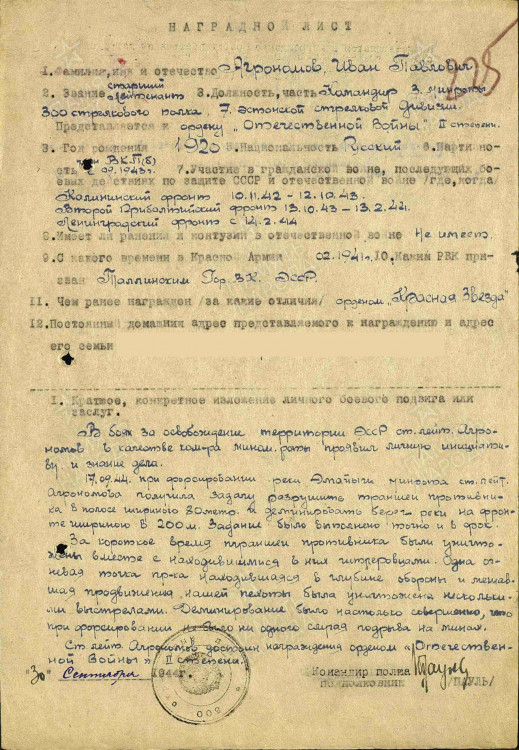 НАГРАДНОЙ ЛИСТ
225
1. Фамилия, имя и отчество Агрономов Иван Павлович
2. Звание старший лейтенант 3. Должность, часть Командир 3. минроты
300 стрелкового полка, 7. эстонской стрелковой дивизии.
Представляется к ордену „Отечественной Войны" II степени.
3. Год рождения 1920 5. Национальность Русский 6. Партий-
ность ВКП(б) с 09.1943г. 7. Участие в гражданской войне, последующих бо-
евых действиях по защите СССР и отечественной войне /где, когда/
Калининский фронт 10.11.42 – 12.10.43.
Второй Прибалтийский фронт 13.10.43 – 13.2.44.
Ленинградский фронт с 14.2.44
8. Имеет ли ранения и контузии в отечественной войне Не имеет.
9. С какого времени в Красной Армии 02.1941г. 10. Каким РВК при-
зван Таллинским Гор. ВК. ЭССР.
11. Чем ранее награжден /за какие отличия/ орденом „Красная Звезда"
12. Постоянный домашний адрес представляемого к награждению и адрес
его семьи
I. Краткое, конкретное изложение личного боевого подвига или
заслуг.
В боях за освобождение территории ЭССР ст. лейт. Агро-
номов в качестве ком-ра мином. роты проявил личную инициати-
ву и знание дела.
17.09.44. при форсировании реки Эмайыги минрота ст. лейт.
Агрономова получила задачу разрушить траншеи противни-
ка в полосе шириною 80 метр. и деминировать берег реки на фрон-
те шириною в 200 м. Задание было выполнено точно и в срок.
За короткое время траншеи противника были уничто-
жены вместе с находившимися в них гитлеровцами. Одна ог-
невая точка пр-ка находившаяся в глубине обороны и мешав-
шая продвижения нашей пехоты была уничтожена нескольки-
ми выстрелами. Деминирование было настолько совершенно, что
при форсировании не было ни одного случая подрыва на минах.
Ст. лейт. Агрономов достоин награждения орденом „Отечествен-
ной Войны" II степени.
"30" Сентября 1944г.
Командир полка
подполковник /ПАУЛЬ/